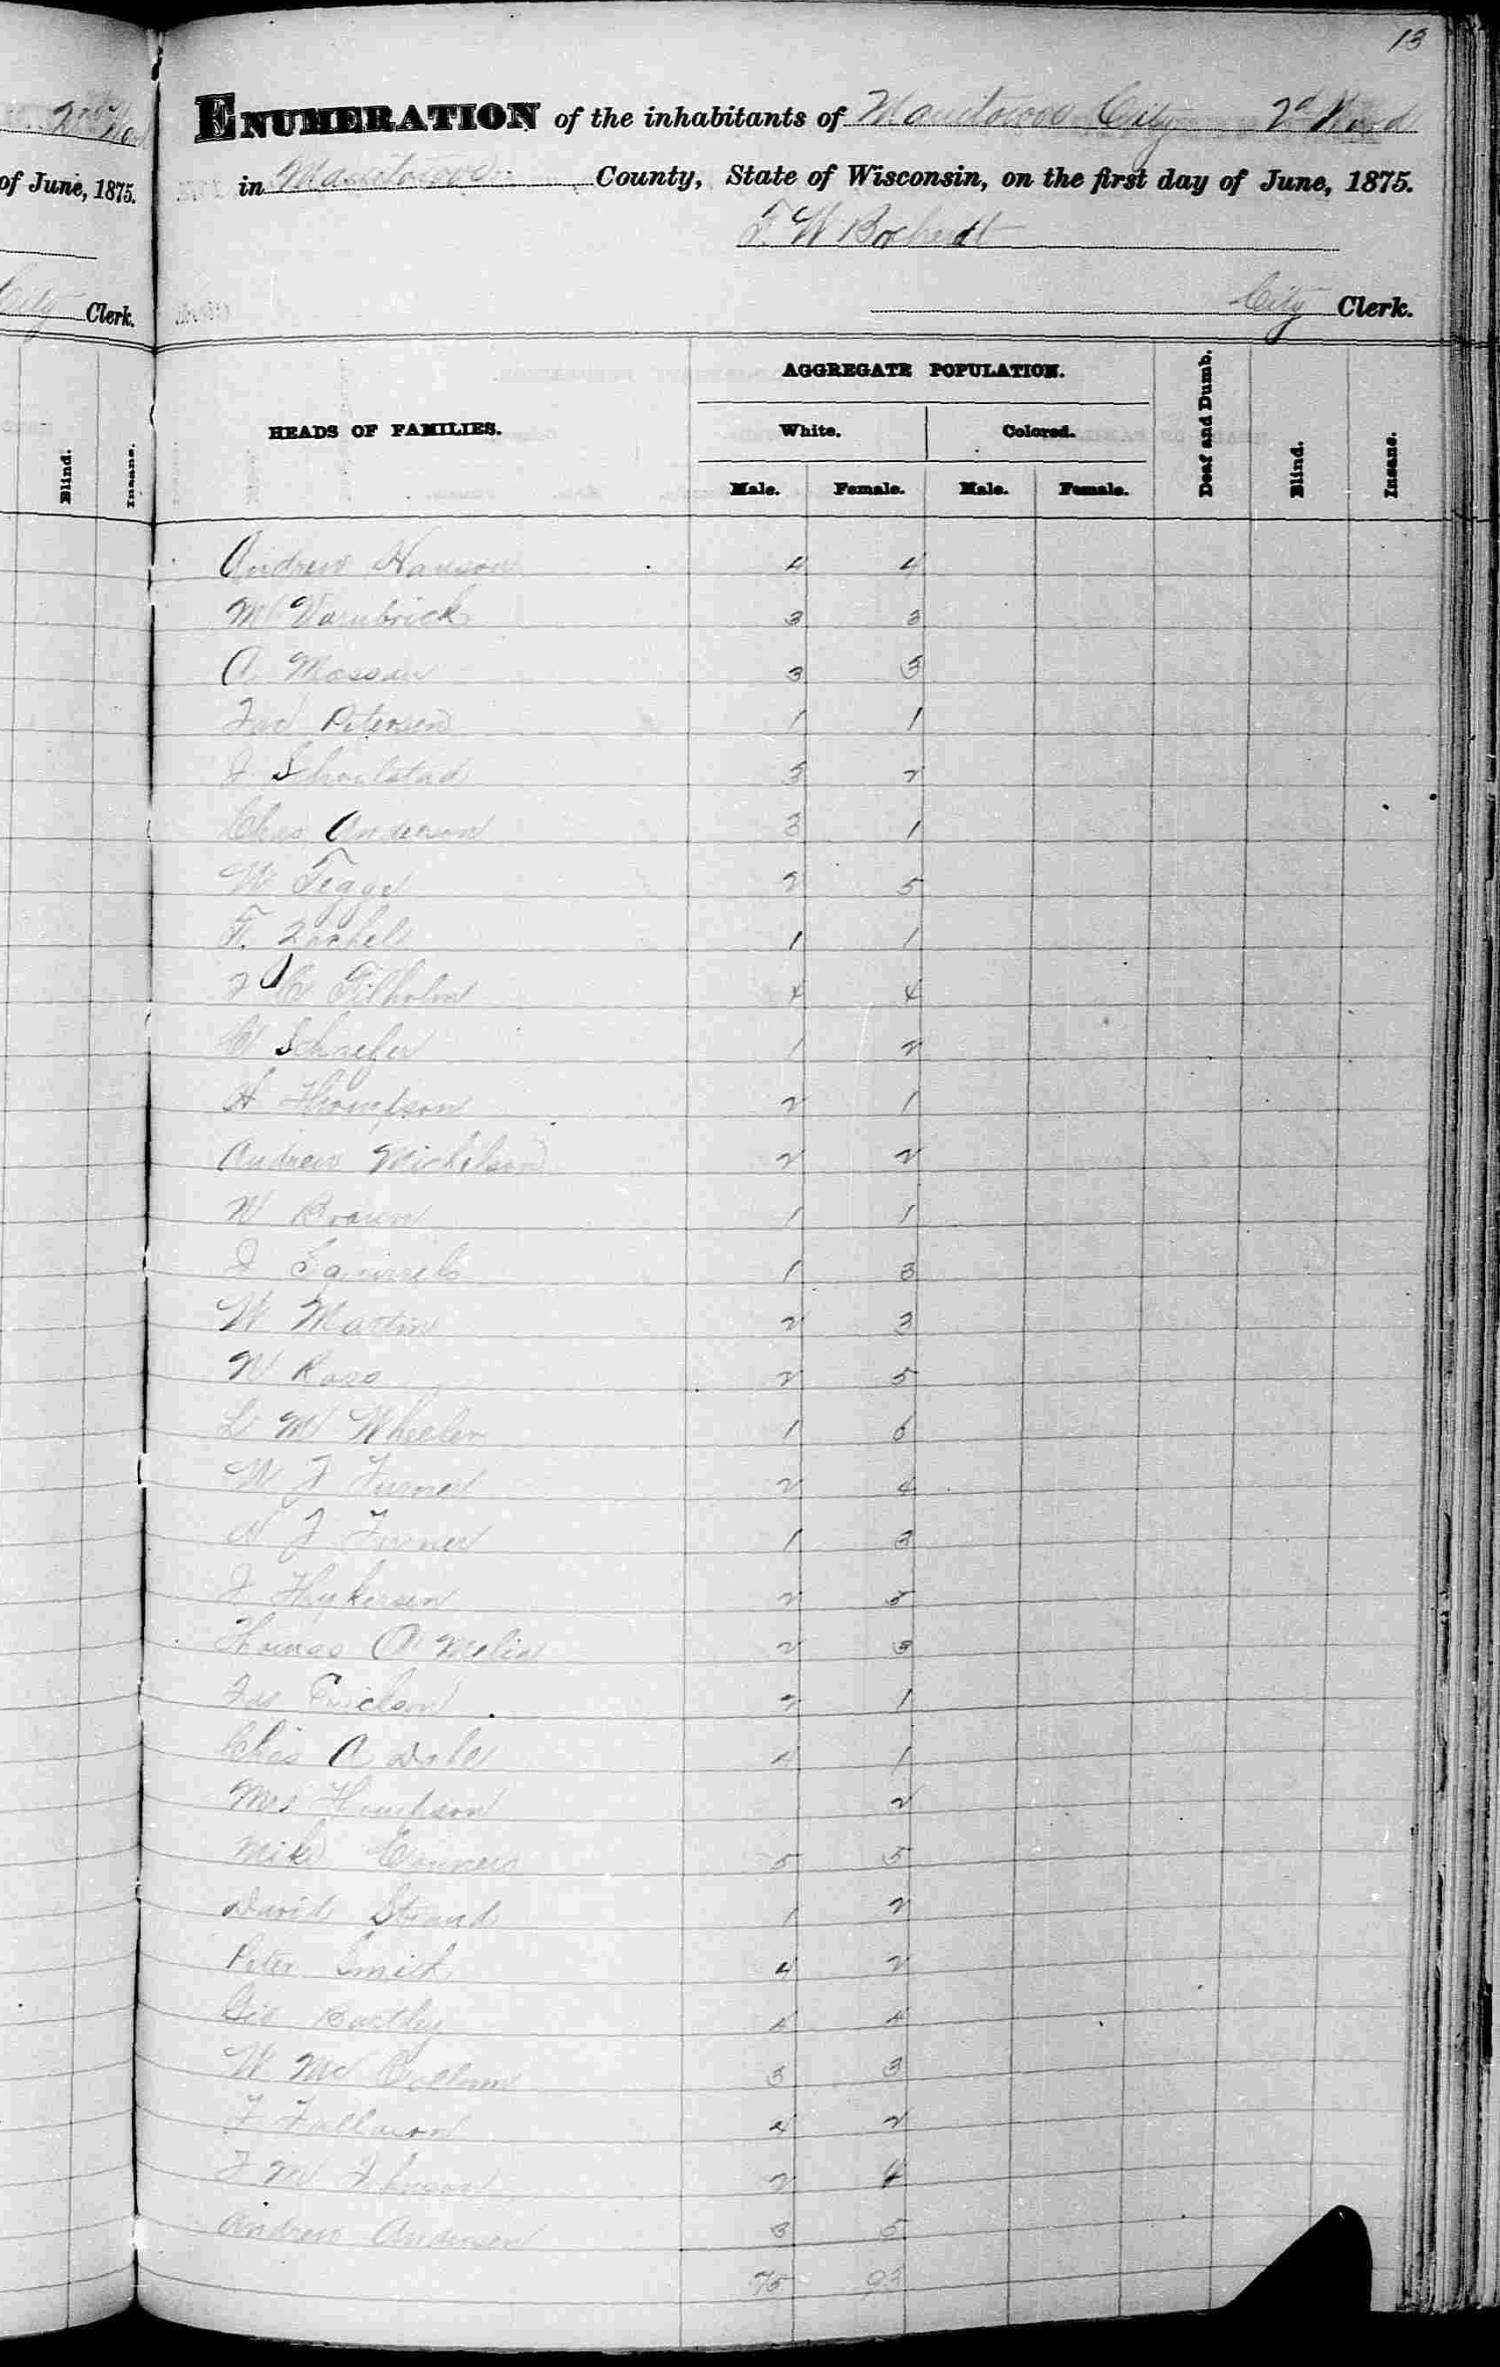 13
2nd Wa
of June, 1875.
City Clerk.
Blind.
Insane.
ENUMERATION of the inhabitants of Manitowoc City 2d Ward
in Manitowoc County, State of Wisconsin, on the first day of June, 1875.
F. W. Borcherdt
City Clerk.
HEADS OF FAMILIES.
AGGREGATE POPULATION.
White. Colored.
Male. Female. Male. Female. Deaf and Dumb. Blind. Insane.
Andrew Hanson 4 4
M Varnbrick 3 3
3 3
Petersen 1 1
3 2
Chas Anderson 3 1
W Tegge 2 5
F. 1 1
Filholm 4 4
Schaefer 1 2
H Thompson 2 1
Andrew Michelson 2 2
W Braun 1 1
J Squirrels 1 3
W Martin 2 3
W Ross 2 5
L M Wheeler 1 6
W J Turner 2 4
J Turner 1 3
2 5
Thomas 2 3
Erickson 2 1
Chas A Dole 4 1
Mrs 2
Mike Conners 5 5
David Strand 1 2
Peter Smith 4 2
Geo Bartley 4 4
W Mc 3 3
4 2
J M Johnson 2 4
Andrew Anderson 3 5
75 93